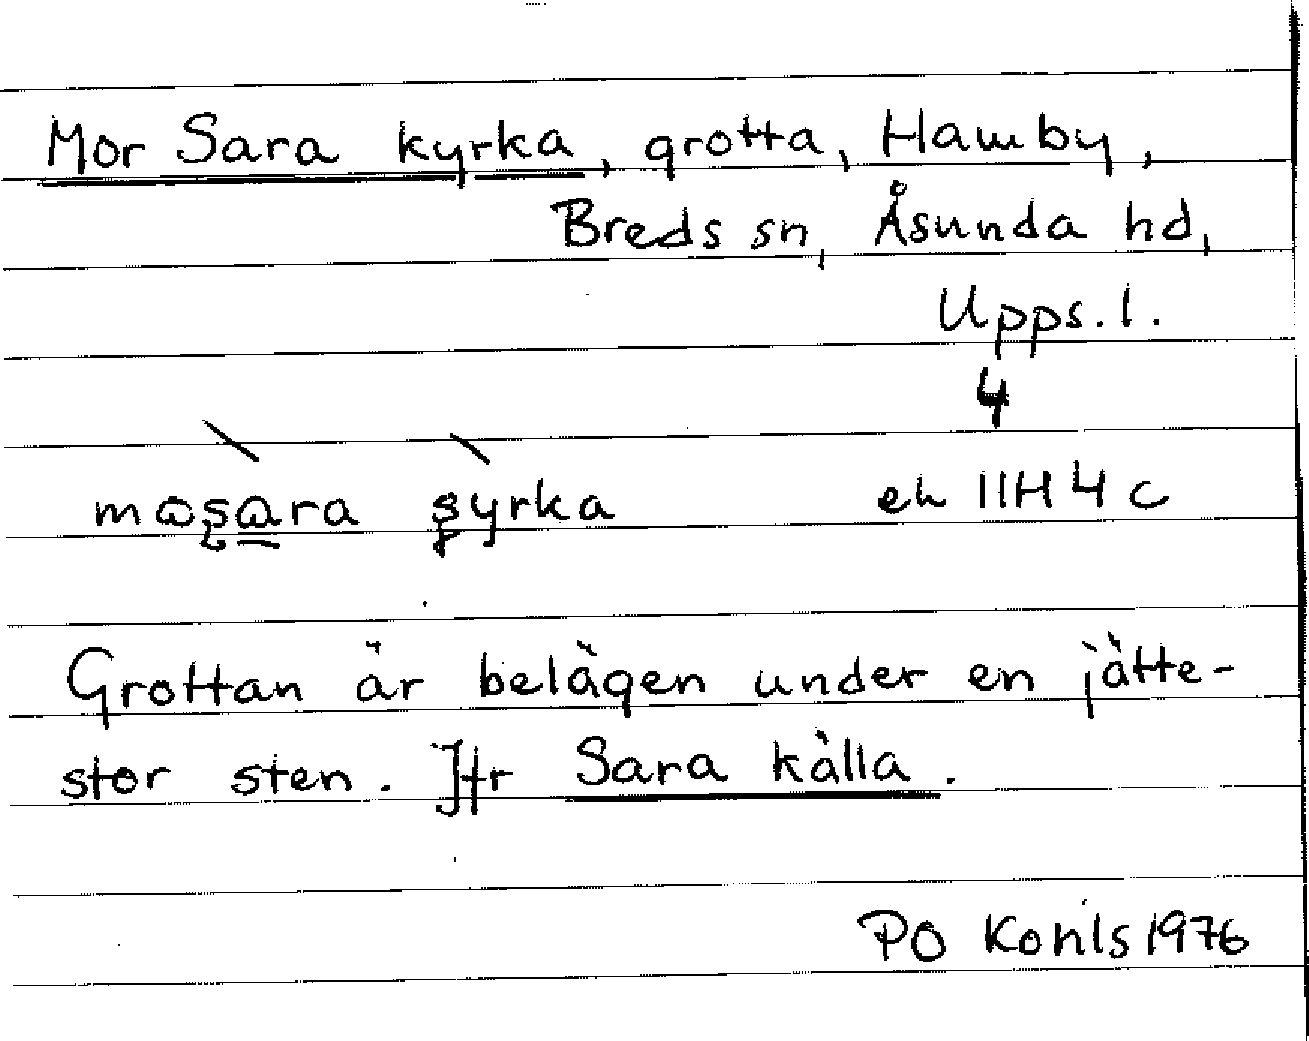 Mor Sara kyrka, grotta, Hamby,
Breds sn, Åsunda hd,
Upps. l.
4
ek 11H 4 c
Grottan är belägen under en jätte-
stor sten. Jfr Sara källa.
PO 1976